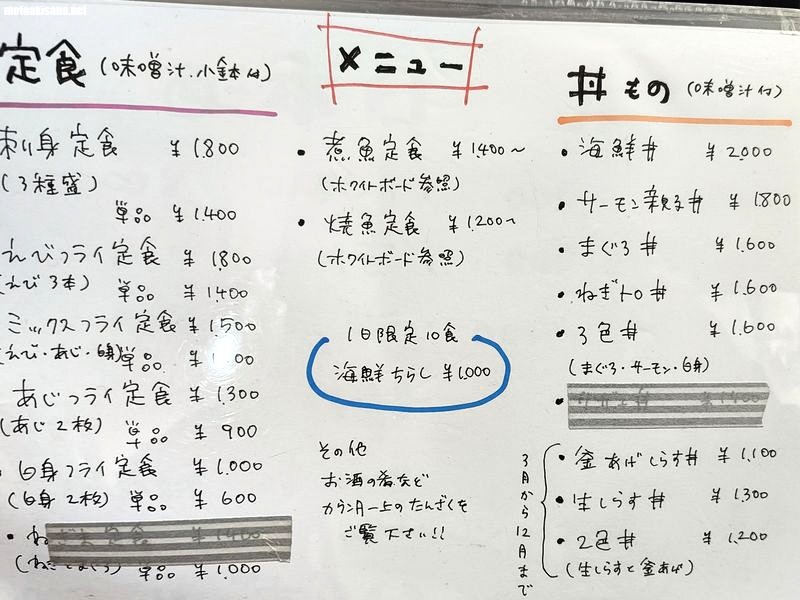 motoakisano.net
定食 (味噌汁.小鉢付)
刺身定食 ¥1.800
(3種盛)
単品 ¥1.400
えびフライ定食 ¥1.800
(えび3本) 単品 ¥1.400
ミックスフライ定食 ¥1.500
(えび・あじ・白身) 単品
あじフライ定食 ¥1.300
(あじ2枚) 単品 ¥900
・白身フライ定食 ¥1.000
(白身2枚) 単品 ¥600
・ねぎま定食 ¥1.400
単品 ¥1.000
メニュー
・煮魚定食 ¥1.400〜
(ホワイトボード参照)
・焼魚定食 ¥1.200〜
(ホワイトボード参照)
1日限定10食
海鮮ちらし ¥1.000
その他
お酒の肴など
カウンター上のたんざくを
ご覧下さい!!
丼もの (味噌汁付)
・海鮮丼 ¥2.000
・サーモン親子丼 ¥1.800
・まぐろ丼 ¥1.600
・ねぎトロ丼 ¥1.600
・3色丼 ¥1.600
(まぐろ・サーモン・白身)
・釜あげしらす丼 ¥1.100
・生しらす丼 ¥1.300
・2色丼 ¥1.200
(生しらすと釜あげ)
3月から12月まで